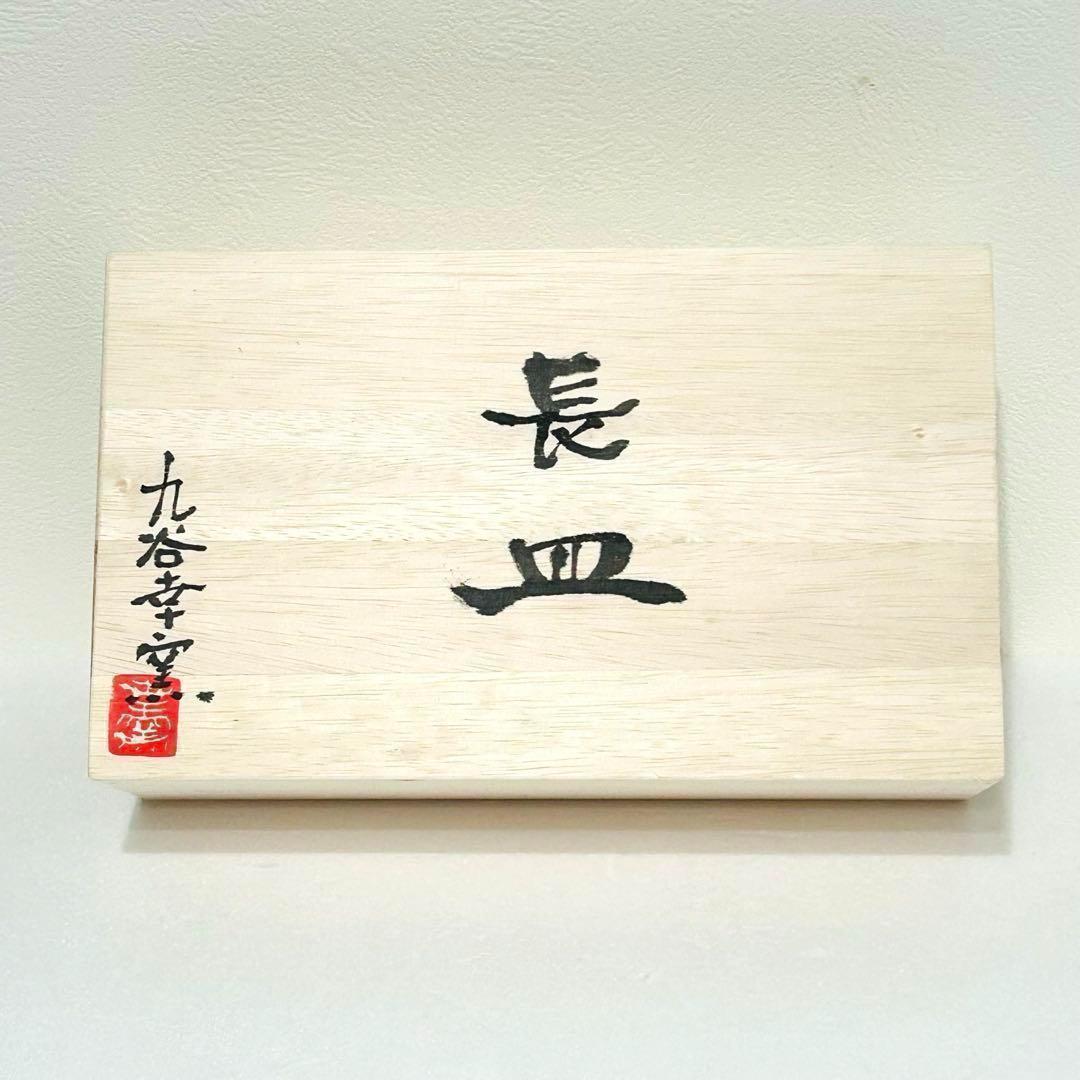 長皿
九谷幸窯